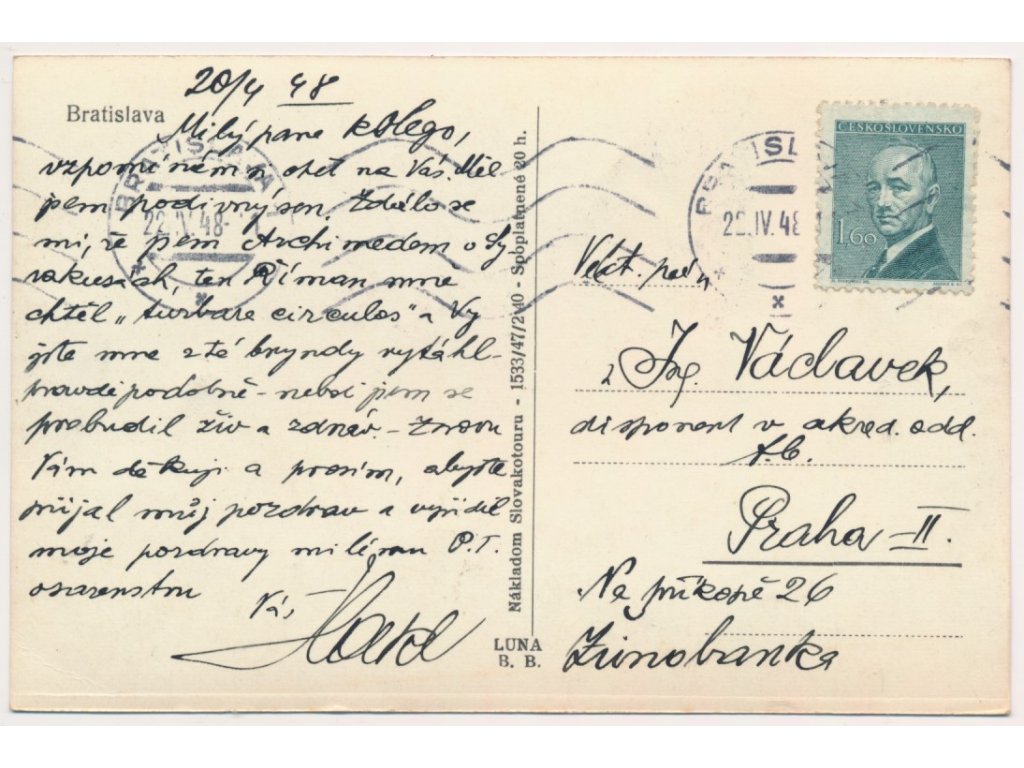 20/4 48
Bratislava
Milý pane kolego,
vzpomínám na Vás. Měl
jsem podivný sen. Zdálo se
mi, že jsem Archimedem v Sy
rakusách, ten Říman mne
chtěl „turbare circulos" a Vy
jste mne z té bryndy vytáhl-
pravděpodobně - neboť jsem se
probudil živ a zdráv. - Znovu
Vám děkuji a prosím, abyste
přijal můj pozdrav a vyřídil
moje pozdravy milému P.T.
osazenstvu
Váš
Nákladom Slovakotouru - 1533/47/2V40 - Spoplatnené 20 h.
LUNA
B. B.
BRATISLAVA
22.IV.48
BRATISL
22.IV.48
ČESKOSLOVENSKO
1.60
Vážt. pán
Ing. Václavek,
disponent v akred. odd.
Praha-II.
Na příkopě 26
Živnobanka